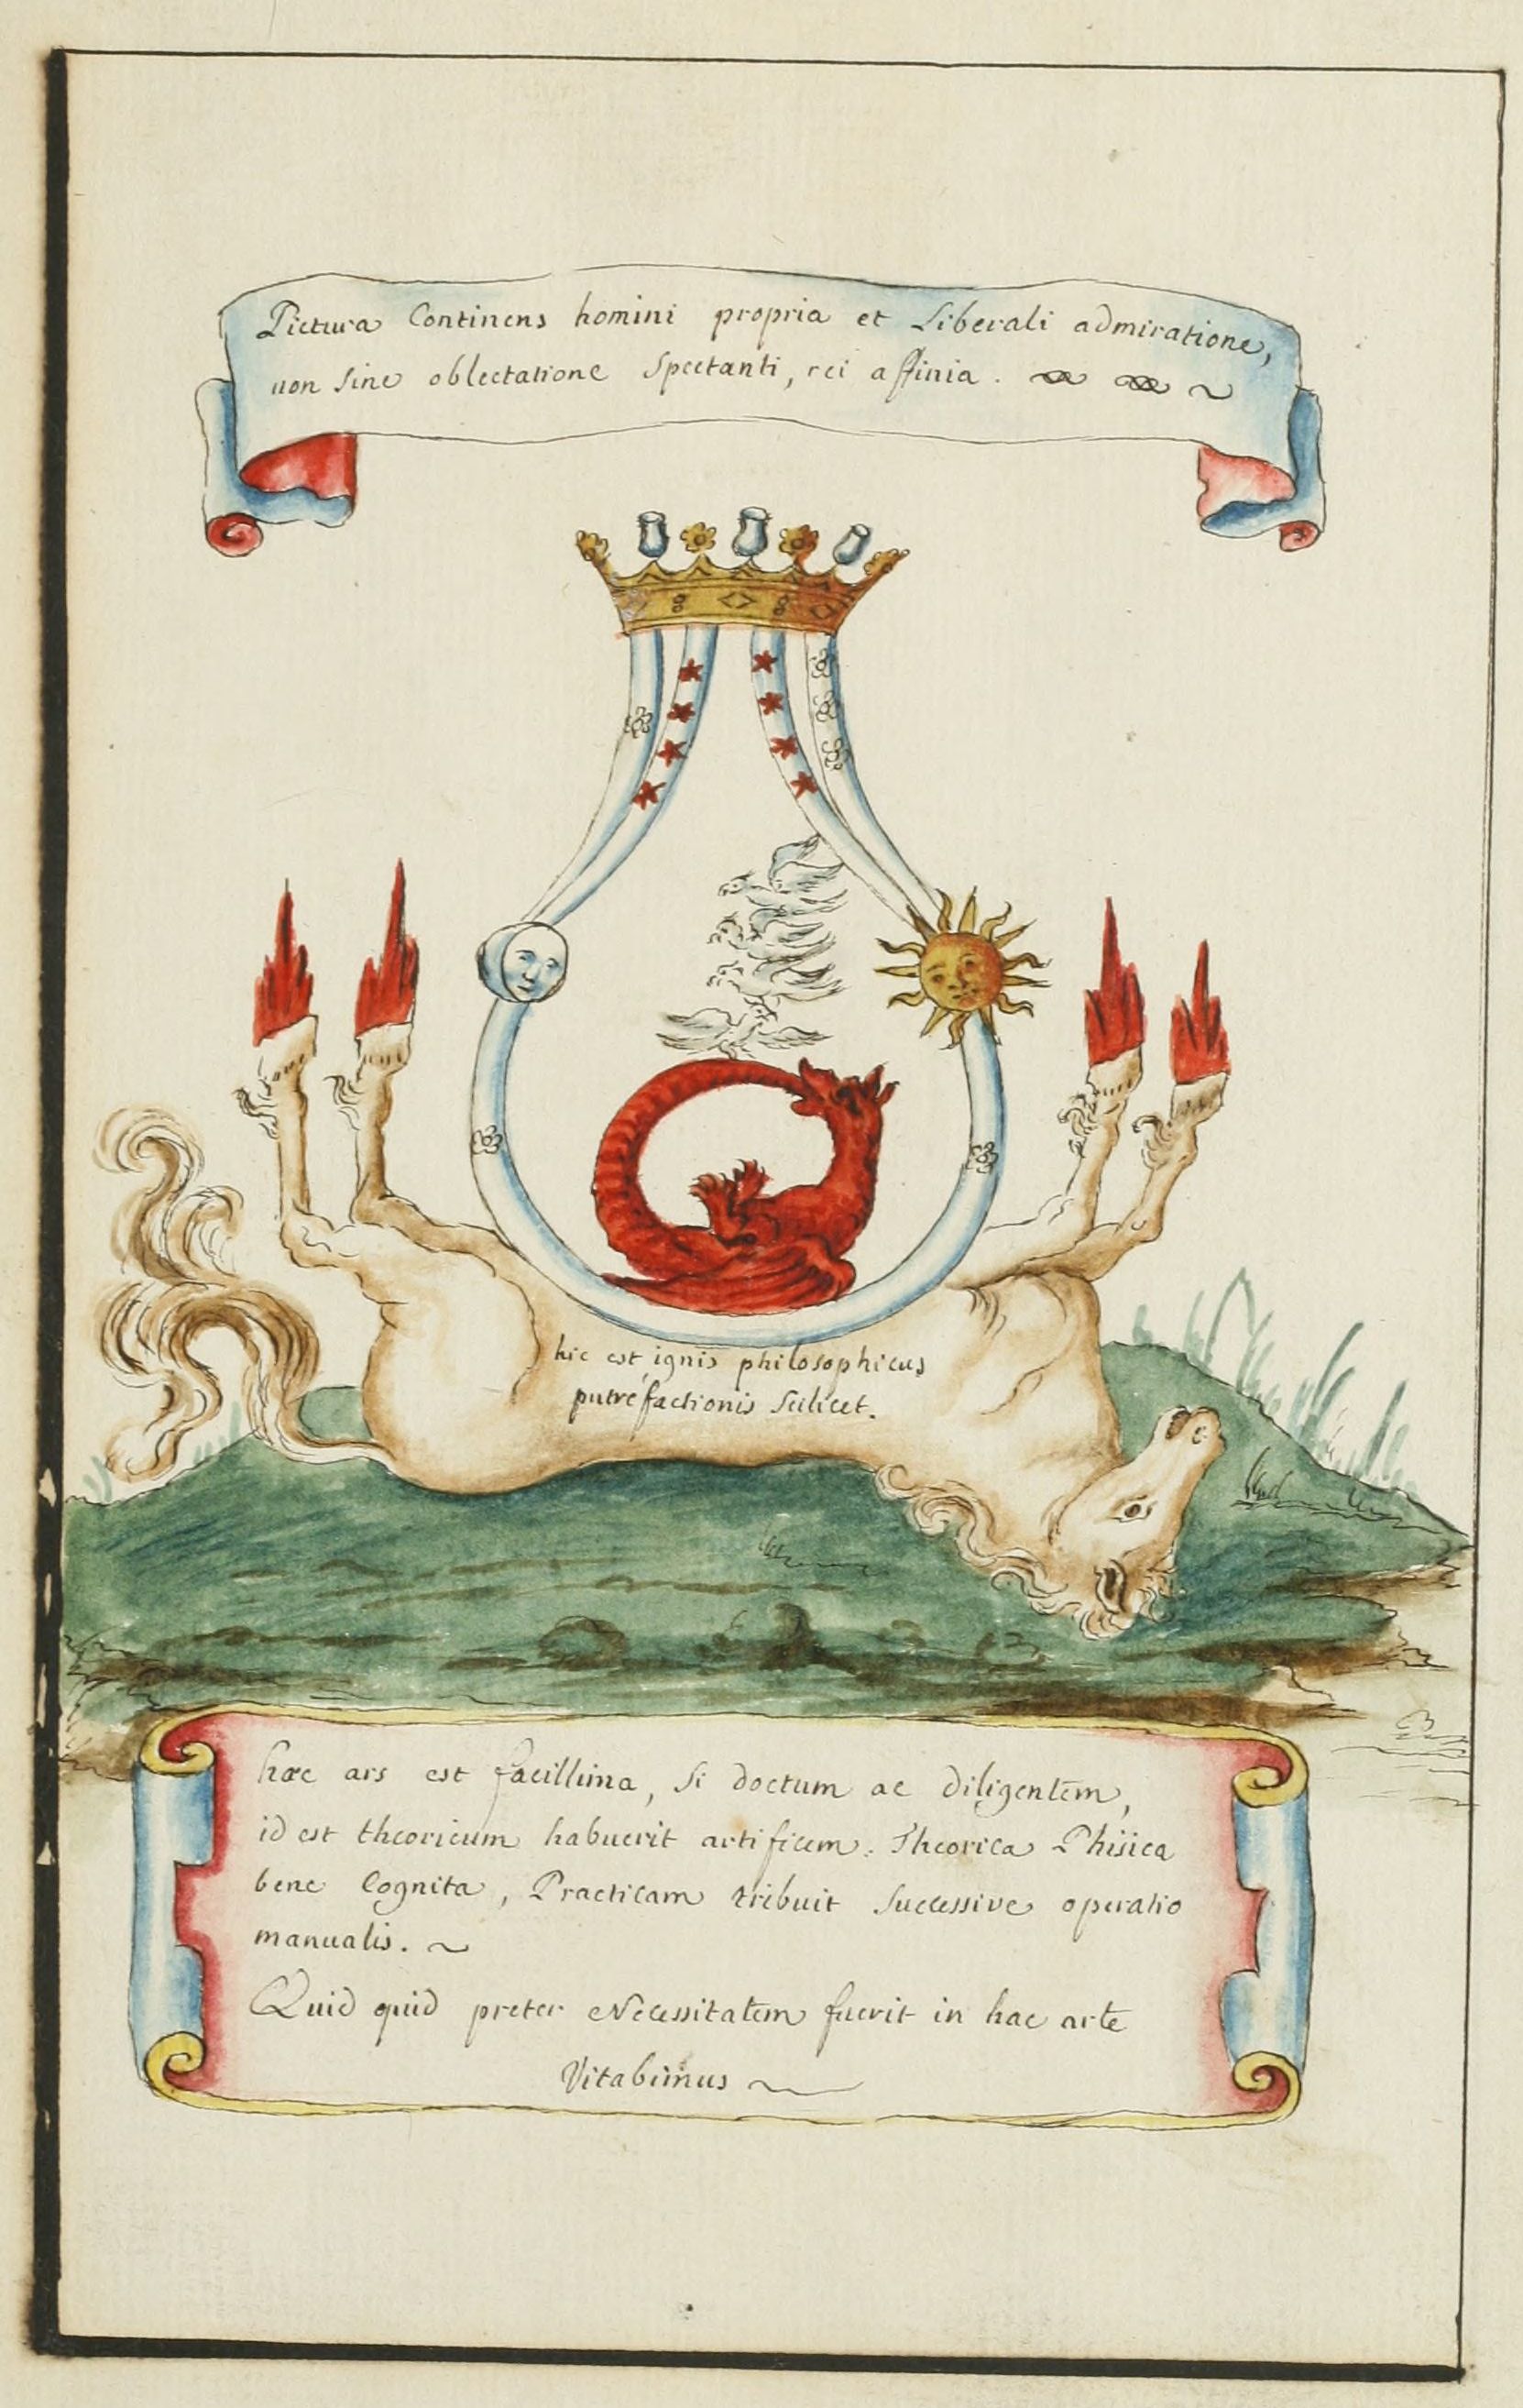 Pictura Continens homini propria et Liberali admiratione,
non Sine oblectatione Spectanti, rei affinia.
hic est ignis philosophicus
putrefactionis Scilicet.
hæc ars est facillima, Si doctum ac diligentem,
id est theoricum habuerit artificem: Theorica Phisica
bene Cognita, Practicam tribuit Successive operatio
manualis.
Quid quid preter Necessitatem fuerit in hac arte
Vitabimus